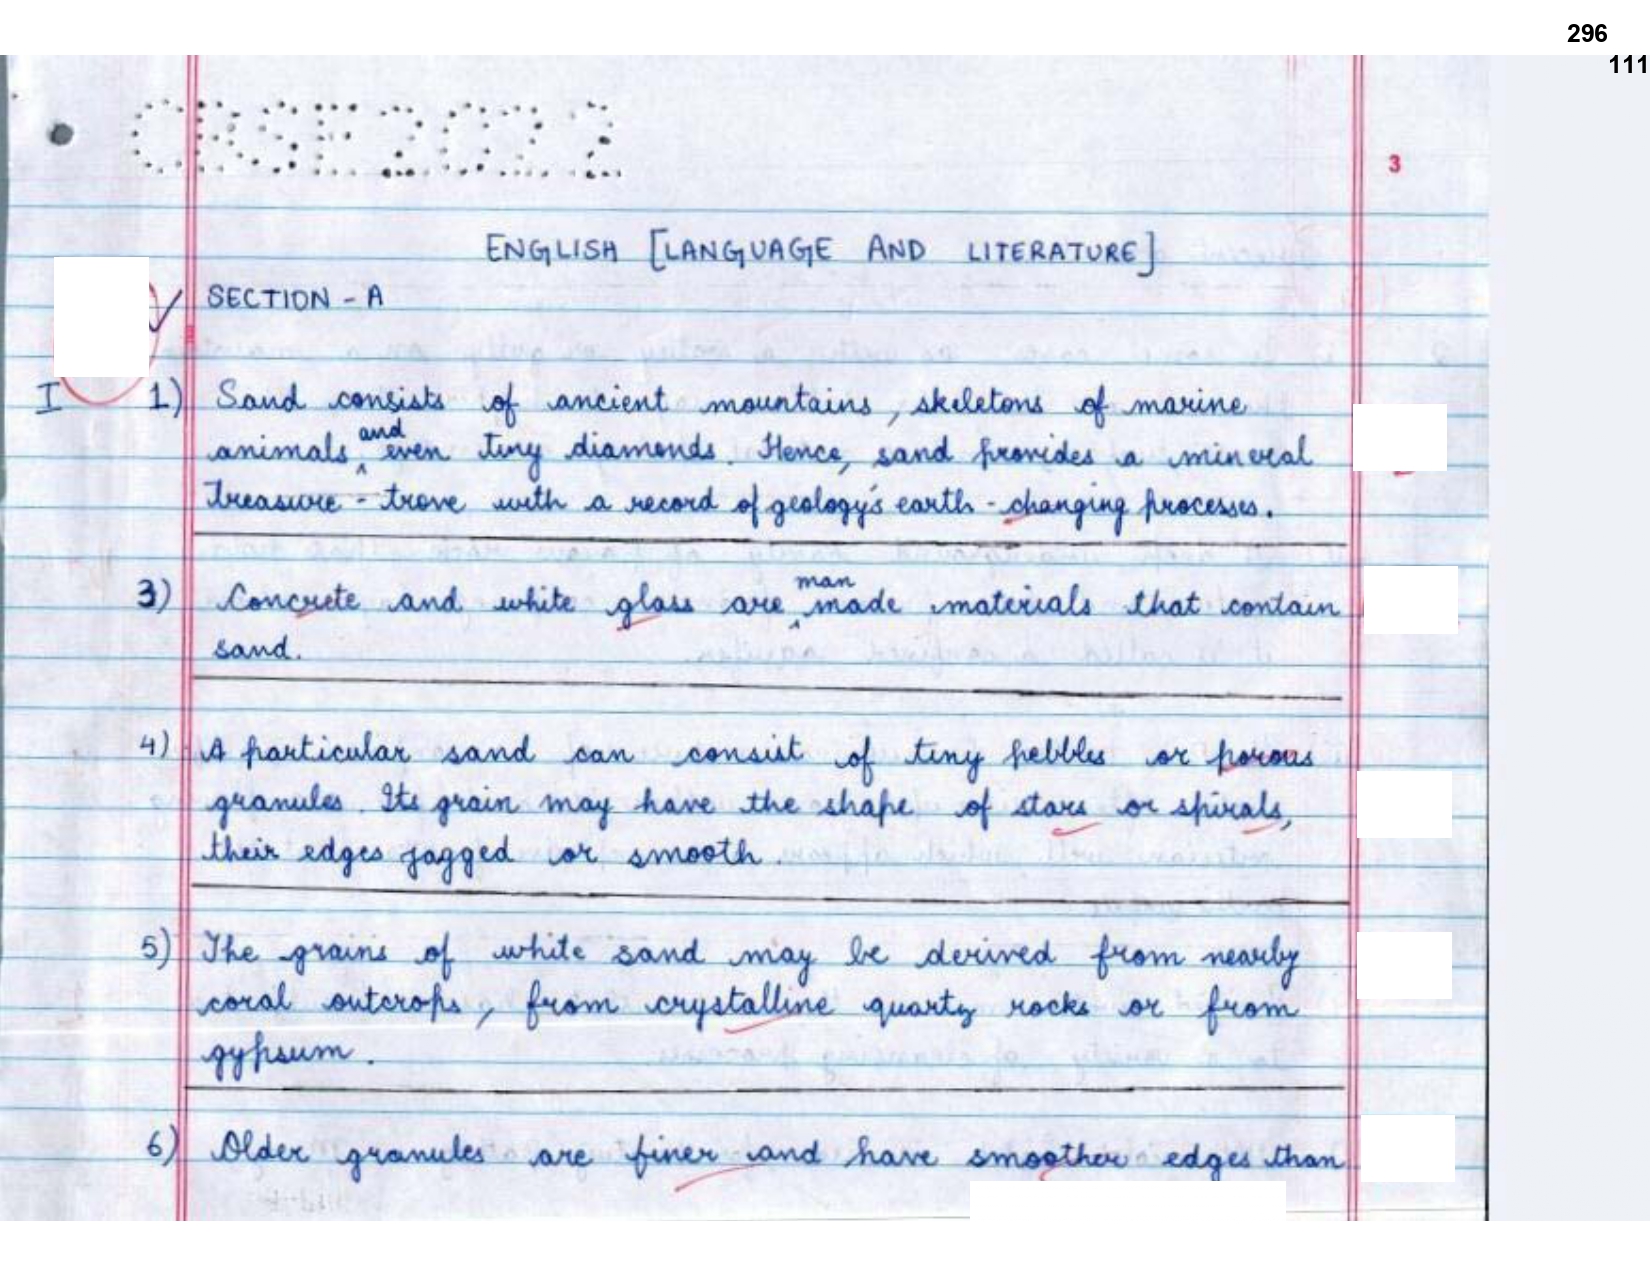 296
111
CBSE2022
3
ENGLISH [LANGUAGE AND LITERATURE]
SECTION - A
I 1) Sand consists of ancient mountains, skeletons of marine
animals and even tiny diamonds. Hence, sand provides a mineral
treasure - trove with a record of geology's earth - changing processes.
3) Concrete and white glass are man made materials that contain
sand.
4) A particular sand can consist of tiny pebbles or porous
granules. Its grain may have the shape of stars or spirals,
their edges jagged or smooth.
5) The grains of white sand may be derived from nearby
coral outcrops, from crystalline quartz rocks or from
gypsum.
6) Older granules are finer and have smoother edges than